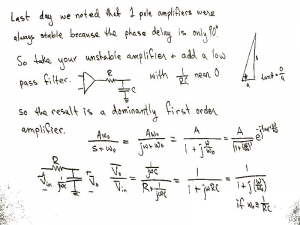 Last day we noted that 1 pole amplifiers were
always stable because the phase delay is only 90°
So take your unstable amplifier + add a low
pass filter. R C with 1/RC near 0
tanθ = o/a
a
so the result is a dominantly first order
amplifier.
Aω₀/(s+ω₀) = Aω₀/(jω+ω₀) = A/(1+j ω/ω₀) =
R V̄in 1/jωC V̄o V̄o/V̄in = (1/jωC)/(R+1/jωC) = 1/(1+jωRC) = 1/(1+j(ω/ω₀))
if ω₀ = 1/RC